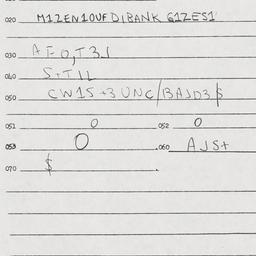 020 M1ZEN10UFD1BANK 61ZES1
030 AF0,T3J
040 S+T1L
050 CW15+3UNC/BAJD3$
051 0 052 0
053 0 060 AJS+
070 $